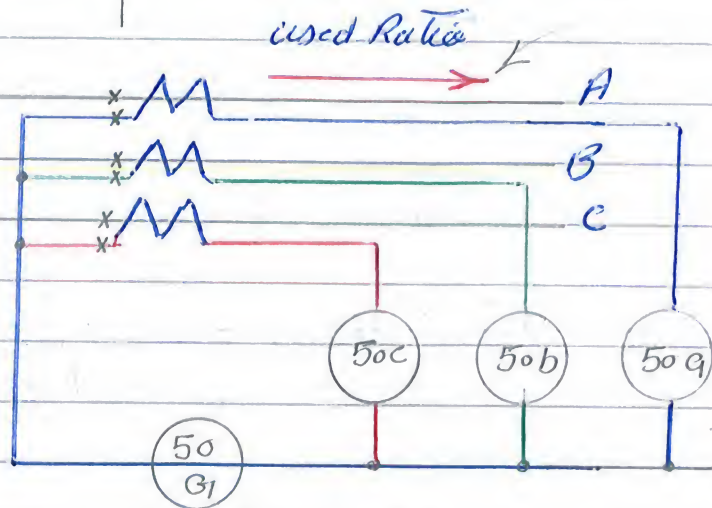 used Ratio
A
B
C
50c
50b
50a
50
G